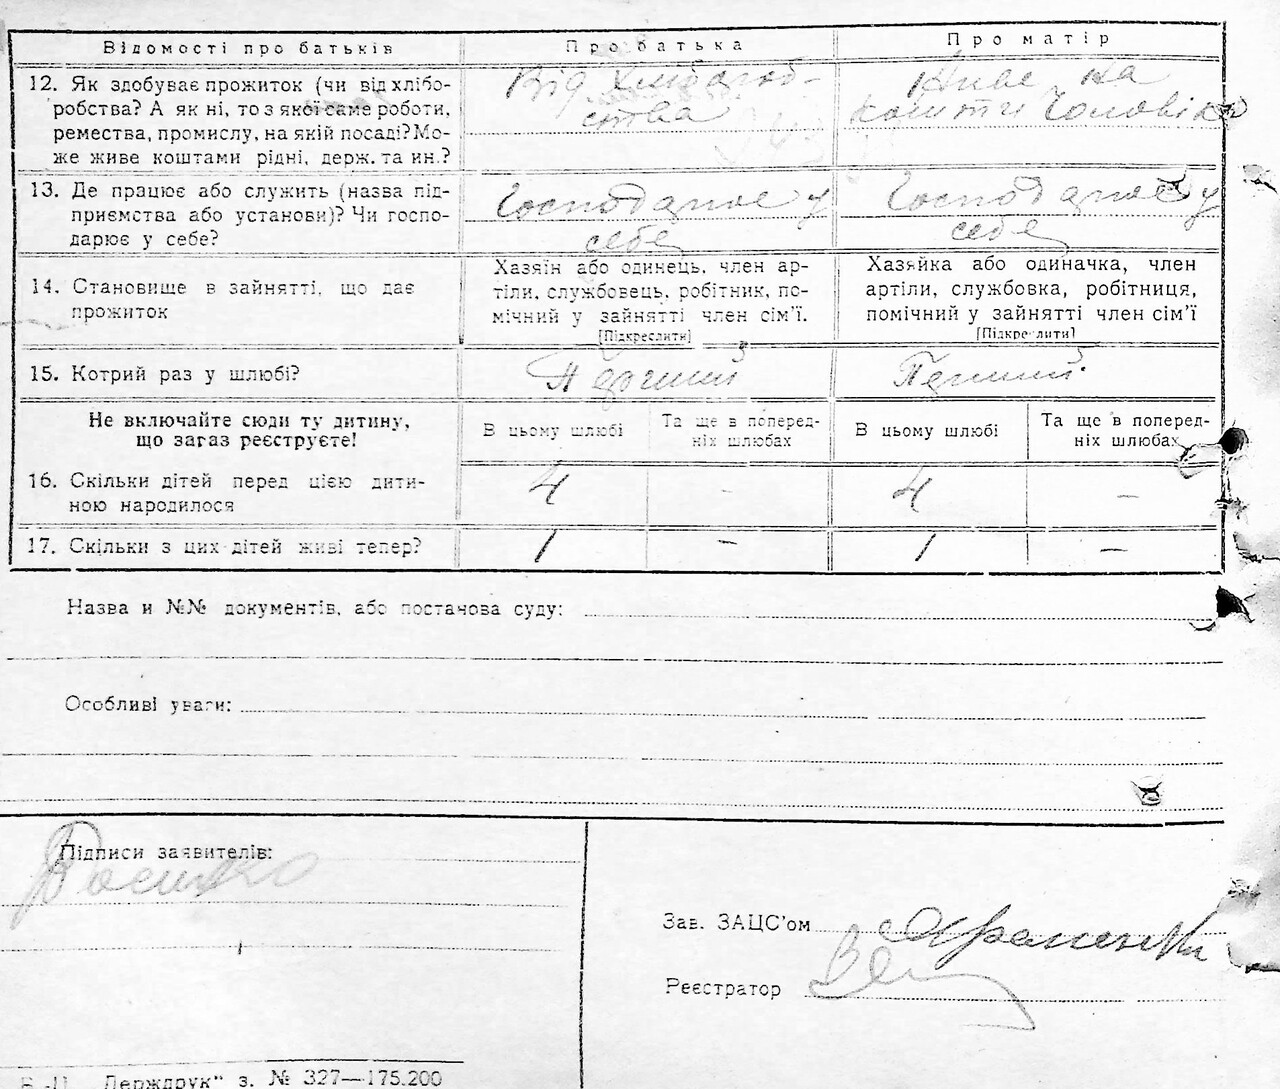 Відомості про батьків
Про батька
Про матір
12. Як здобуває прожиток (чи від хлібо-
робства? А як ні, то з якої саме роботи,
ремества, промислу, на якій посаді? Мо-
же живе коштами рідні, держ. та ин.?
Від хлібороб-
ства
Живе на
кошти чоловіка
13. Де працює або служить (назва під-
приємства або установи)? Чи госпо-
дарює у себе?
Господарює у
себе
Господарює у
себе
14. Становище в зайнятті, що дає
прожиток
Хазяїн або одинець, член ар-
тіли, службовець, робітник, по-
мічний у зайнятті член сім'ї.
[Підкреслити]
Хазяйка або одиначка, член
артіли, службовка, робітниця,
помічний у зайнятті член сім'ї
[Підкреслити]
15. Котрий раз у шлюбі?
Не включайте сюди ту дитину,
що зараз реєструєте!
В цьому шлюбі
Та ще в поперед-
ніх шлюбах
В цьому шлюбі
Та ще в поперед-
ніх шлюбах
16. Скільки дітей перед цією дити-
ною народилося
4
-
4
-
17. Скільки з цих дітей живі тепер?
1
-
1
-
Назва и №№ документів, або постанова суду:
Особливі уваги:
Підписи заявителів:
Зав. ЗАЦС'ом
Реєстратор
Держдрук" з. № 327—175.200